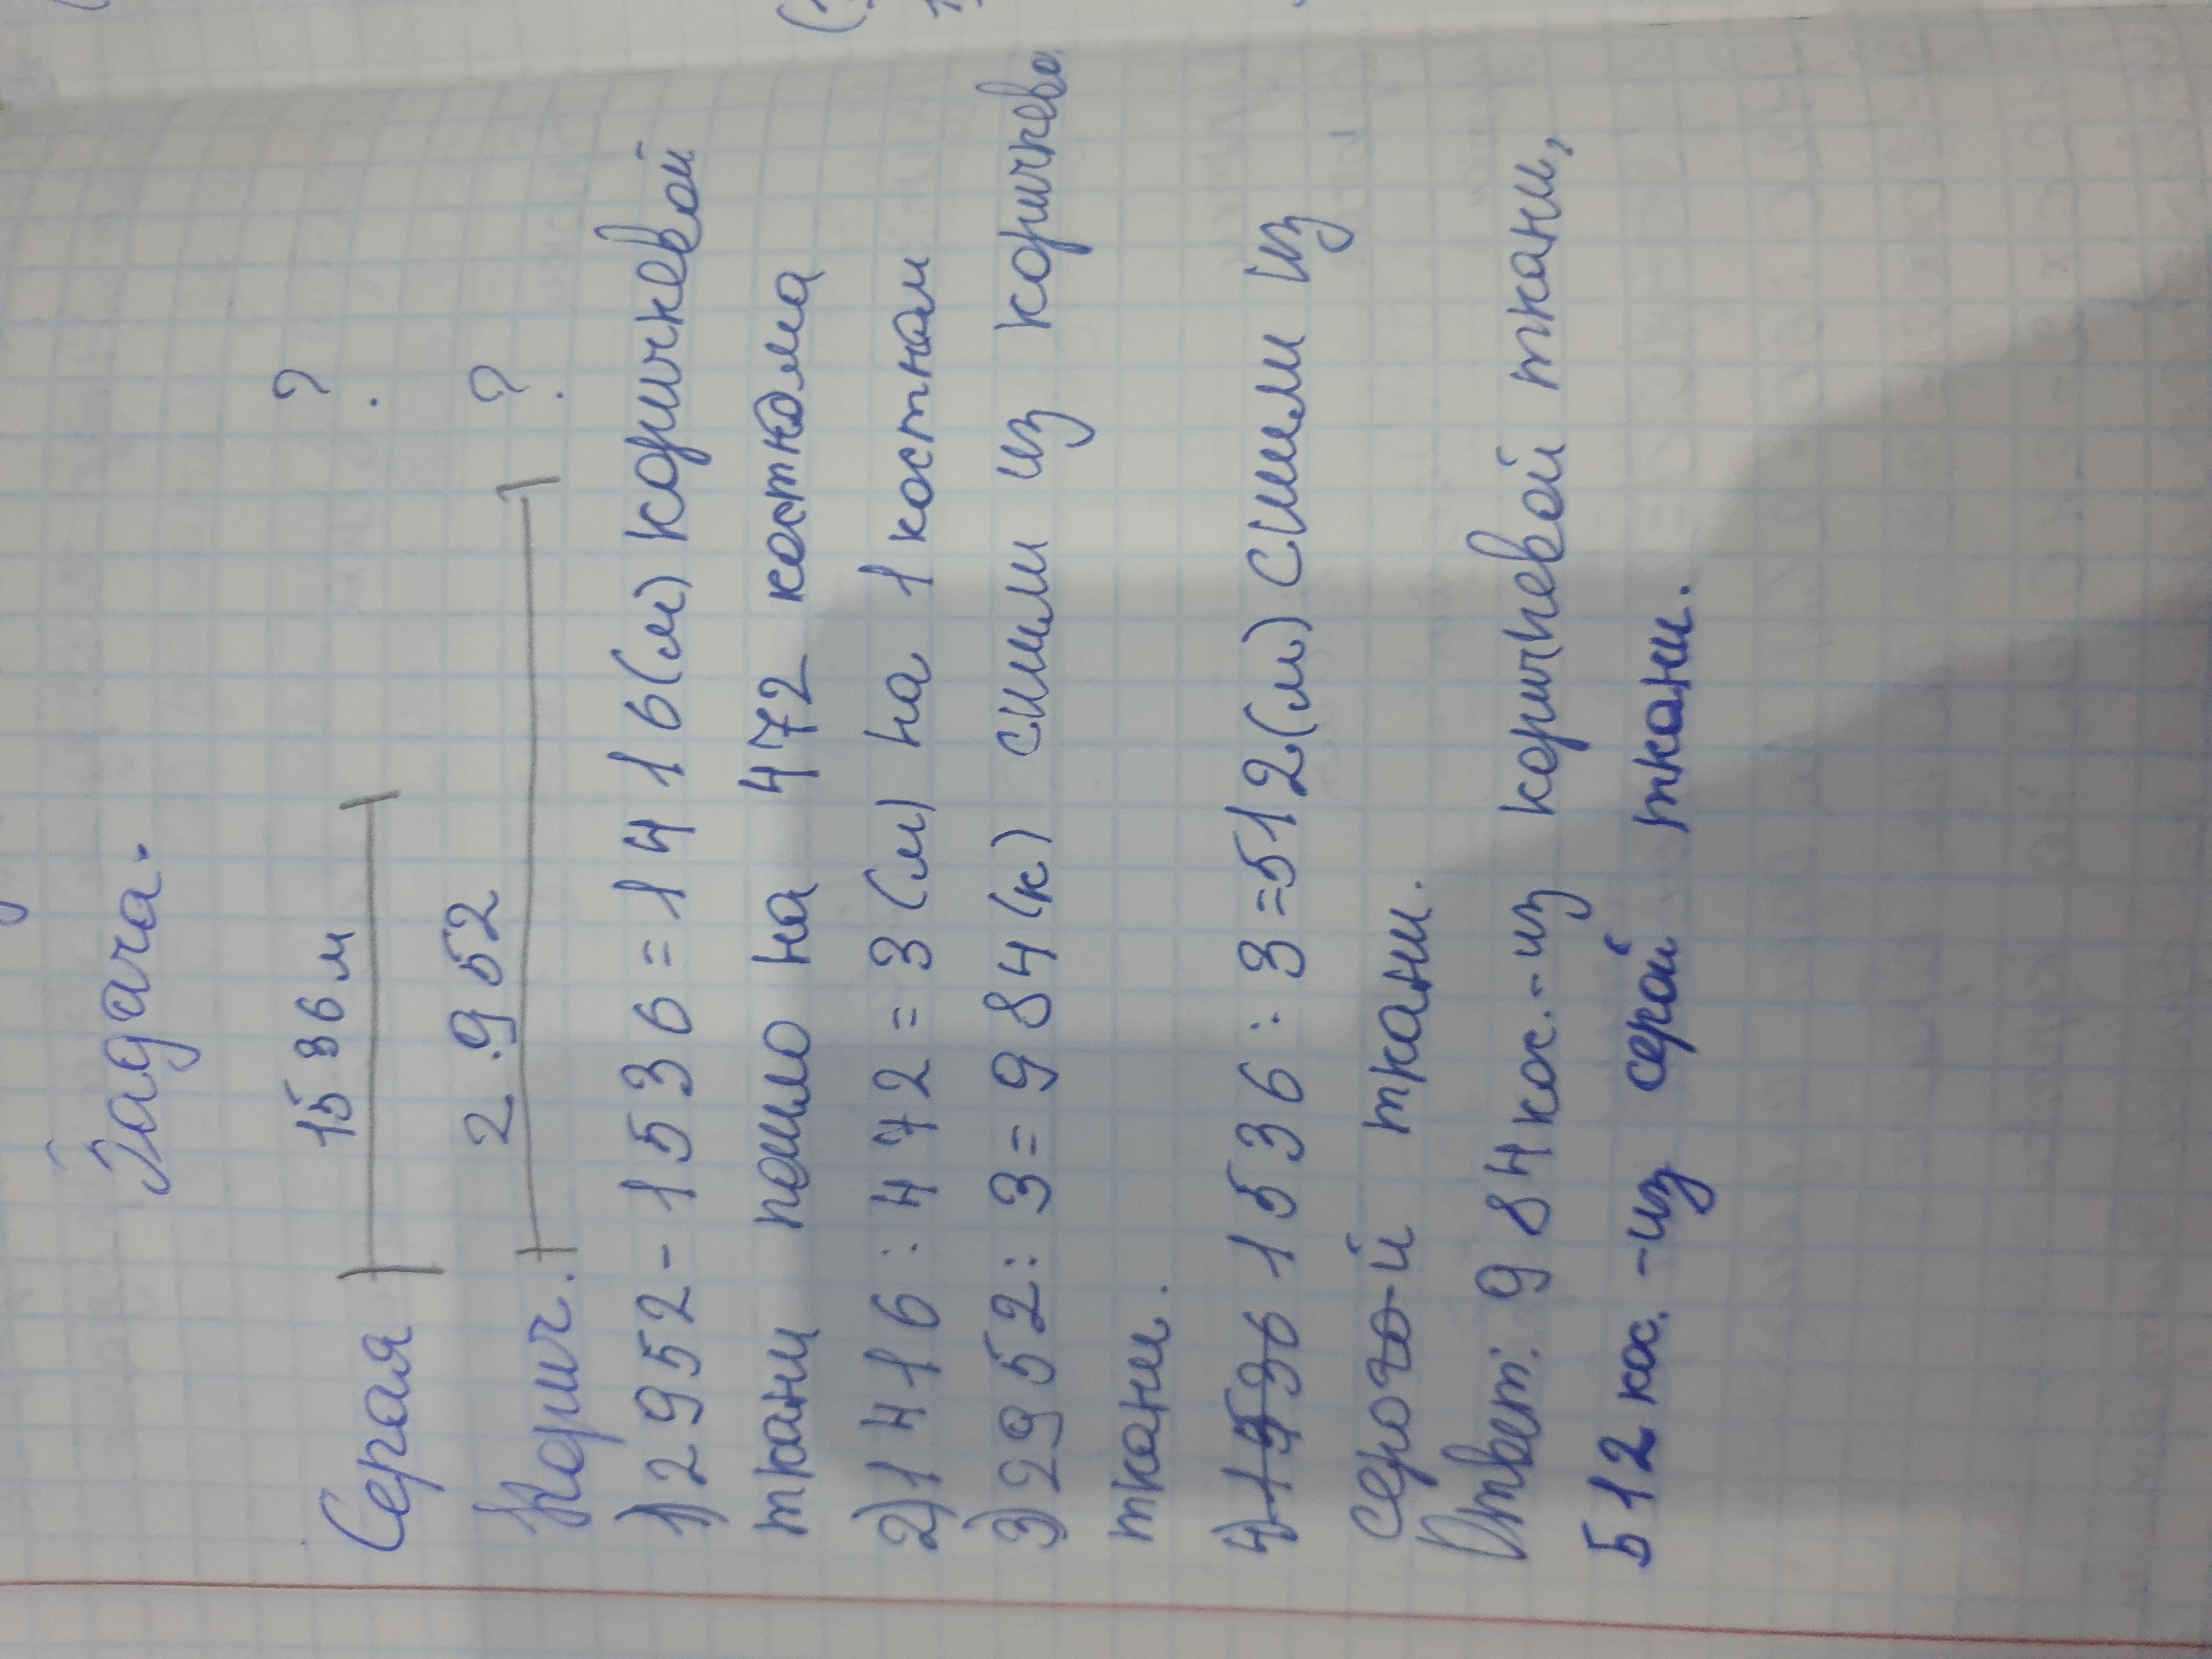 Задача.
Серая 1536 м ?
Корич. 2.952 ?
1) 2952-1536=1416(м) коричневой
ткани пошло на 472 костюма
2) 1416:472=3(м) на 1 костюм
3) 2952:3=984(к) сшили из коричнево
ткани.
4) 1536 1536:3=512(м) сшили из
серой ткани.
Ответ: 984 кос.-из коричневой ткани,
512 кос.-из серой ткани.